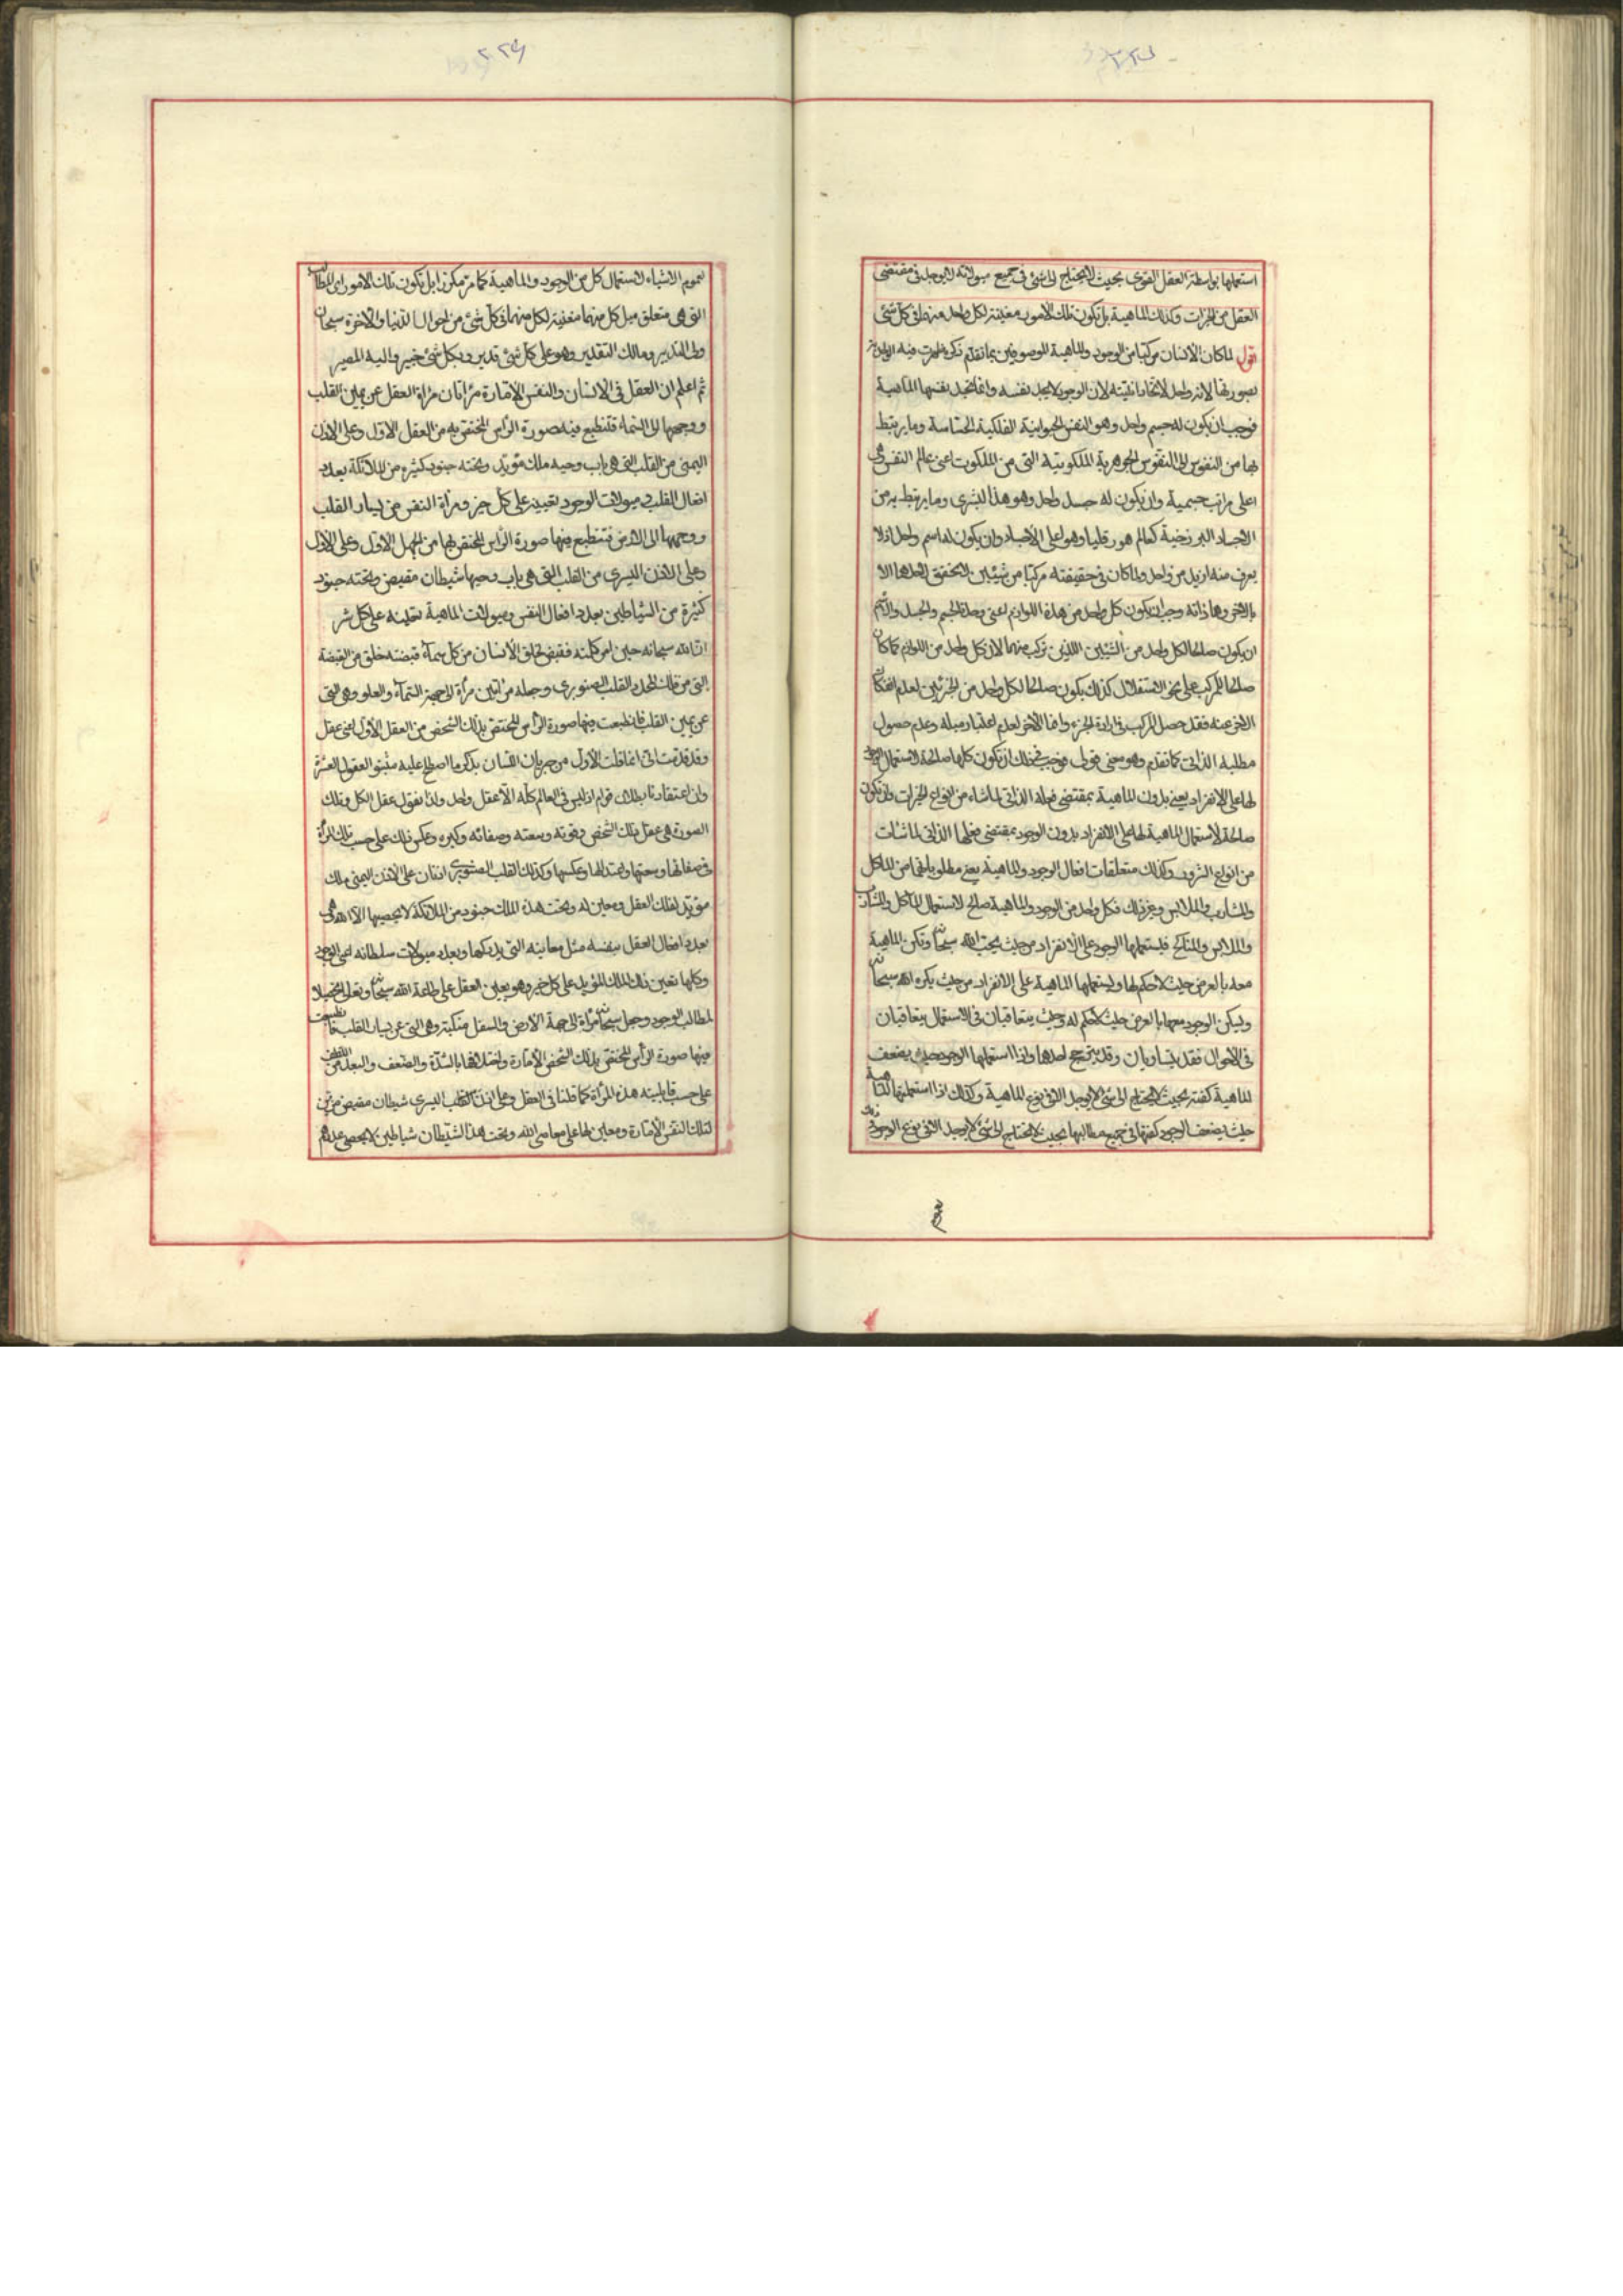 استعملها بواسطة العقل القوى بحيث لا يحتاج الى شئ فى جميع ميولاته لا يوجد فى مقتضى
العقل من الخيرات وكذلك الماهية بل تكون تلك الامور مغنية لكل واحد منهما فى كل شئ
اقول لما كان الانسان مركبا من الوجود والماهية الموصوفين بما تقدم ذكره ظهرت فيه
لان الوجود لا يجد نفسه وانما تجد نفسها الماهية
فوجب ان يكون له جسم واحد وهو النفس الحيوانية الفلكية الحساسة وما يرتبط
بها من النفوس الى النفوس الجوهرية الملكوتية التى من الملكوت اعنى عالم النفس هى
اعلى مراتب جسمية وان يكون له جسد واحد وهو هذا البشرى وما يرتبط به من
الاجساد البرزخية كعالم هورقليا وهو اعلى الاجساد وان يكون له اسم واحد اذ لا
يعرف منه ازيد من واحد ولما كان فى حقيقته مركبا من شيئين لا يتحقق احدهما الا
بالاخر وهما ذاته وجب ان يكون كل واحد من هذه اللوازم اعنى وحدة الجسم والجسد والاسم
ان يكون صالحا لكل واحد من الشيئين اللذين تركب منهما لان كل واحد من اللوازم كما كان
صالحا للمركب على نحو الاستقلال كذلك يكون صالحا لكل واحد من الجزئين لعدم انفكاك
الاخر عنه فقد حصل المركب فى ارادة الجزء واما الاخر لعدم اعتبار ميله وعدم حصول
مطلبه الذاتى كما تقدم وهو معنى قولى فوجب فى ذلك ان تكون كلها صالحة لاستعمال الوجود
لها على الانفراد يعنى بدون الماهية بمقتضى فعله الذاتى لما شاء من انواع الخيرات وان تكون
صالحة لاستعمال الماهية لها على الانفراد بدون الوجود بمقتضى فعلها الذاتى لما شاءت
من انواع الشرور وكذلك متعلقات افعال الوجود والماهية يعنى مطلوباتهما من المآكل
والمشارب والملابس وغير ذلك فكل واحد من الوجود والماهية صالح لاستعمال المآكل والمشارب
والملابس والمناكح فليستعملها الوجود على الانفراد من حيث يحب الله سبحانه وتكن الماهية
معه بالعرض حيث لا حكم لها وليستعملها الماهية على الانفراد من حيث يكره الله سبحانه
وليكن الوجود معها بالعرض حيث لا حكم له وحيث يتعاقبان فى الاستعمال يتعاقبان
فى الاحوال فقد يتساويان وقد يترجح احدهما واذا استعملها الوجود حيث يضعف
الماهية كفته بحيث لا يحتاج الى شئ لا يوجد الا فى نوع الماهية وكذلك اذا استعملتها الماهية
حيث يضعف الوجود كفتها فى جميع مطالبها بحيث لا تحتاج الى شئ لا يوجد الا فى نوع الوجود
لعموم الاشياء لاستعمال كل من الوجود والماهية كما مر مكررا بل تكون تلك الامور اى المطالب
التى هى متعلق ميل كل منهما مغنية لكل منهما فى كل شئ من احوال الدنيا والاخرة سبحان
ولى التدبير ومالك التقدير وهو على كل شئ قدير وبكل شئ خبير واليه المصير
ثم اعلم ان العقل فى الانسان والنفس الامارة مرآتان مرآة العقل عن يمين القلب
ووجهها الى السماء فتنطبع فيه صورة الرأس المختص به من العقل الاول وعلى الاذن
اليمنى من القلب التى هى باب وحيه ملك مؤيد وتحته جنود كثيرة من الملائكة بعدد
افعال القلب وميولات الوجود تعينه على كل خير ومرآة النفس من يسار القلب
ووجهها الى الارض فتنطبع فيها صورة الرأس المختص بها من الجهل الاول وعلى الاول
وعلى الاذن اليسرى من القلب التى هى باب وحيها شيطان مقيض وتحته جنود
كثيرة من الشياطين بعدد افعال النفس وميولات الماهية تعينه على كل شر
ان الله سبحانه حين امر ملائكته فقبض لخلق الانسان من كل سماء قبضة خلق من القبضة
التى من فلك المحدد القلب الصنوبرى وجعله مرآتين مرآة الى جهة السماء والعلو وهى التى
عن يمين القلب فانطبعت فيها صورة الرأس المختص بذلك الشخص من العقل الاول اعنى عقل
وقد قدمت انى انما قلت الاول من جريان اللسان بذكر ما اصطلح عليه مثبتو العقول العشرة
وان اعتقادنا بطلان قولهم اذ ليس فى العالم كله الا عقل واحد ولذا نقول عقل الكل وتلك
الصورة هى عقل ذلك الشخص وقوته وسعته وصفائه وكبره وعكس ذلك على حسب تلك المرآة
فى صفائها وسعتها واعتدالها وعكسها وكذلك القلب الصنوبرى اذنان على الاذن اليمنى ملك
مؤيد لذلك العقل ومعين له وتحت هذا الملك جنود من الملائكة لا يحصيها الا الله هى
بعدد افعال العقل بنفسه مثل معاينه التى يدركها وبعدد ميولات سلطانه اعنى الوجود
وكلها تعين ذلك الملك المؤيد على كل خير وهو يعين العقل على طاعة الله سبحانه وتعالى
لمطالب الوجود وجعل سبحانه مرآة الى جهة الارض والسفل منكبة وهى التى عن يسار القلب فانطبعت
فيها صورة الرأس المختص بذلك الشخص الامارة واختلافها بالشدة والضعف والبعد من اللطف
على حسب قابلية هذه المرآة كما قلنا فى العقل وعلى اذن القلب اليسرى شيطان مقيض مزين
لتلك النفس الامارة ومعين لها على معاصى الله وتحت هذا الشيطان شياطين لا يحصى عددهم